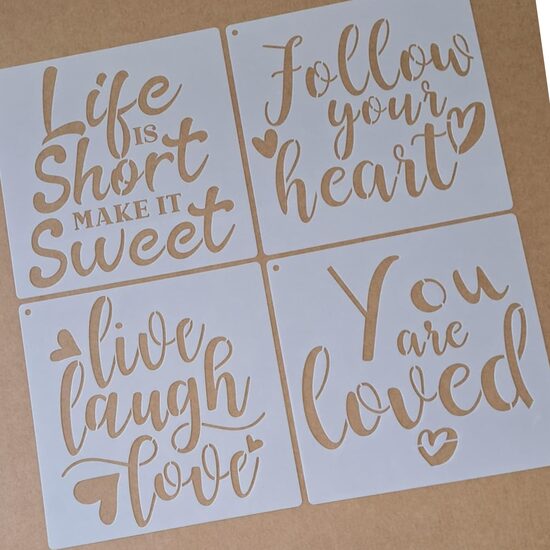 Life
IS
Short
MAKE IT
Sweet
Follow
your
heart
live
laugh
love
You
are
loved